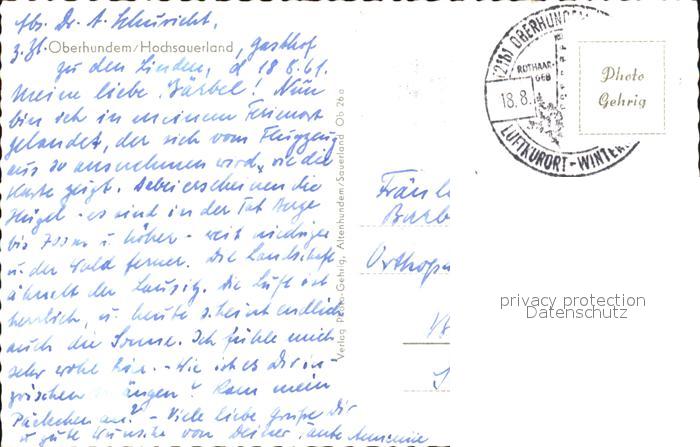 Abs. Dr. A. Schuricht,
z. Zt. Oberhundem/Hochsauerland, Gasthof
zu den Linden, d 18.8.61.
Meine liebe Bärbel! Nun
bin ich in meinem Ferienort
gelandet, der sich vom Flugzeug
aus so ausnehmen wird, wie die
Karte zeigt. Dabei erscheinen die
Hügel - es sind in der Tat Berge
bis 700m u. höher - weit niedriger
u. der Wald ferner. Die Landschaft
ähnelt der Lausitz. Die Luft ist
herrlich, u. heute scheint endlich
auch die Sonne. Ich fühle mich
sehr wohl hier. - Wie ist es Dir in-
zwischen ergangen? Kam mein
Päckchen an? - Viele liebe Grüße Dir
u. gute Wünsche von Deiner Tante Annemie
Verlag Photo-Gehrig, Altenhundem/Sauerland Ob 26a
(21b) OBERHUNDEM
ROTHAAR-
GEB
18.8.
LUFTKURORT - WINTER
Photo
Gehrig
Fräul
Bärb
Orthopä
privacy protection
Datenschutz